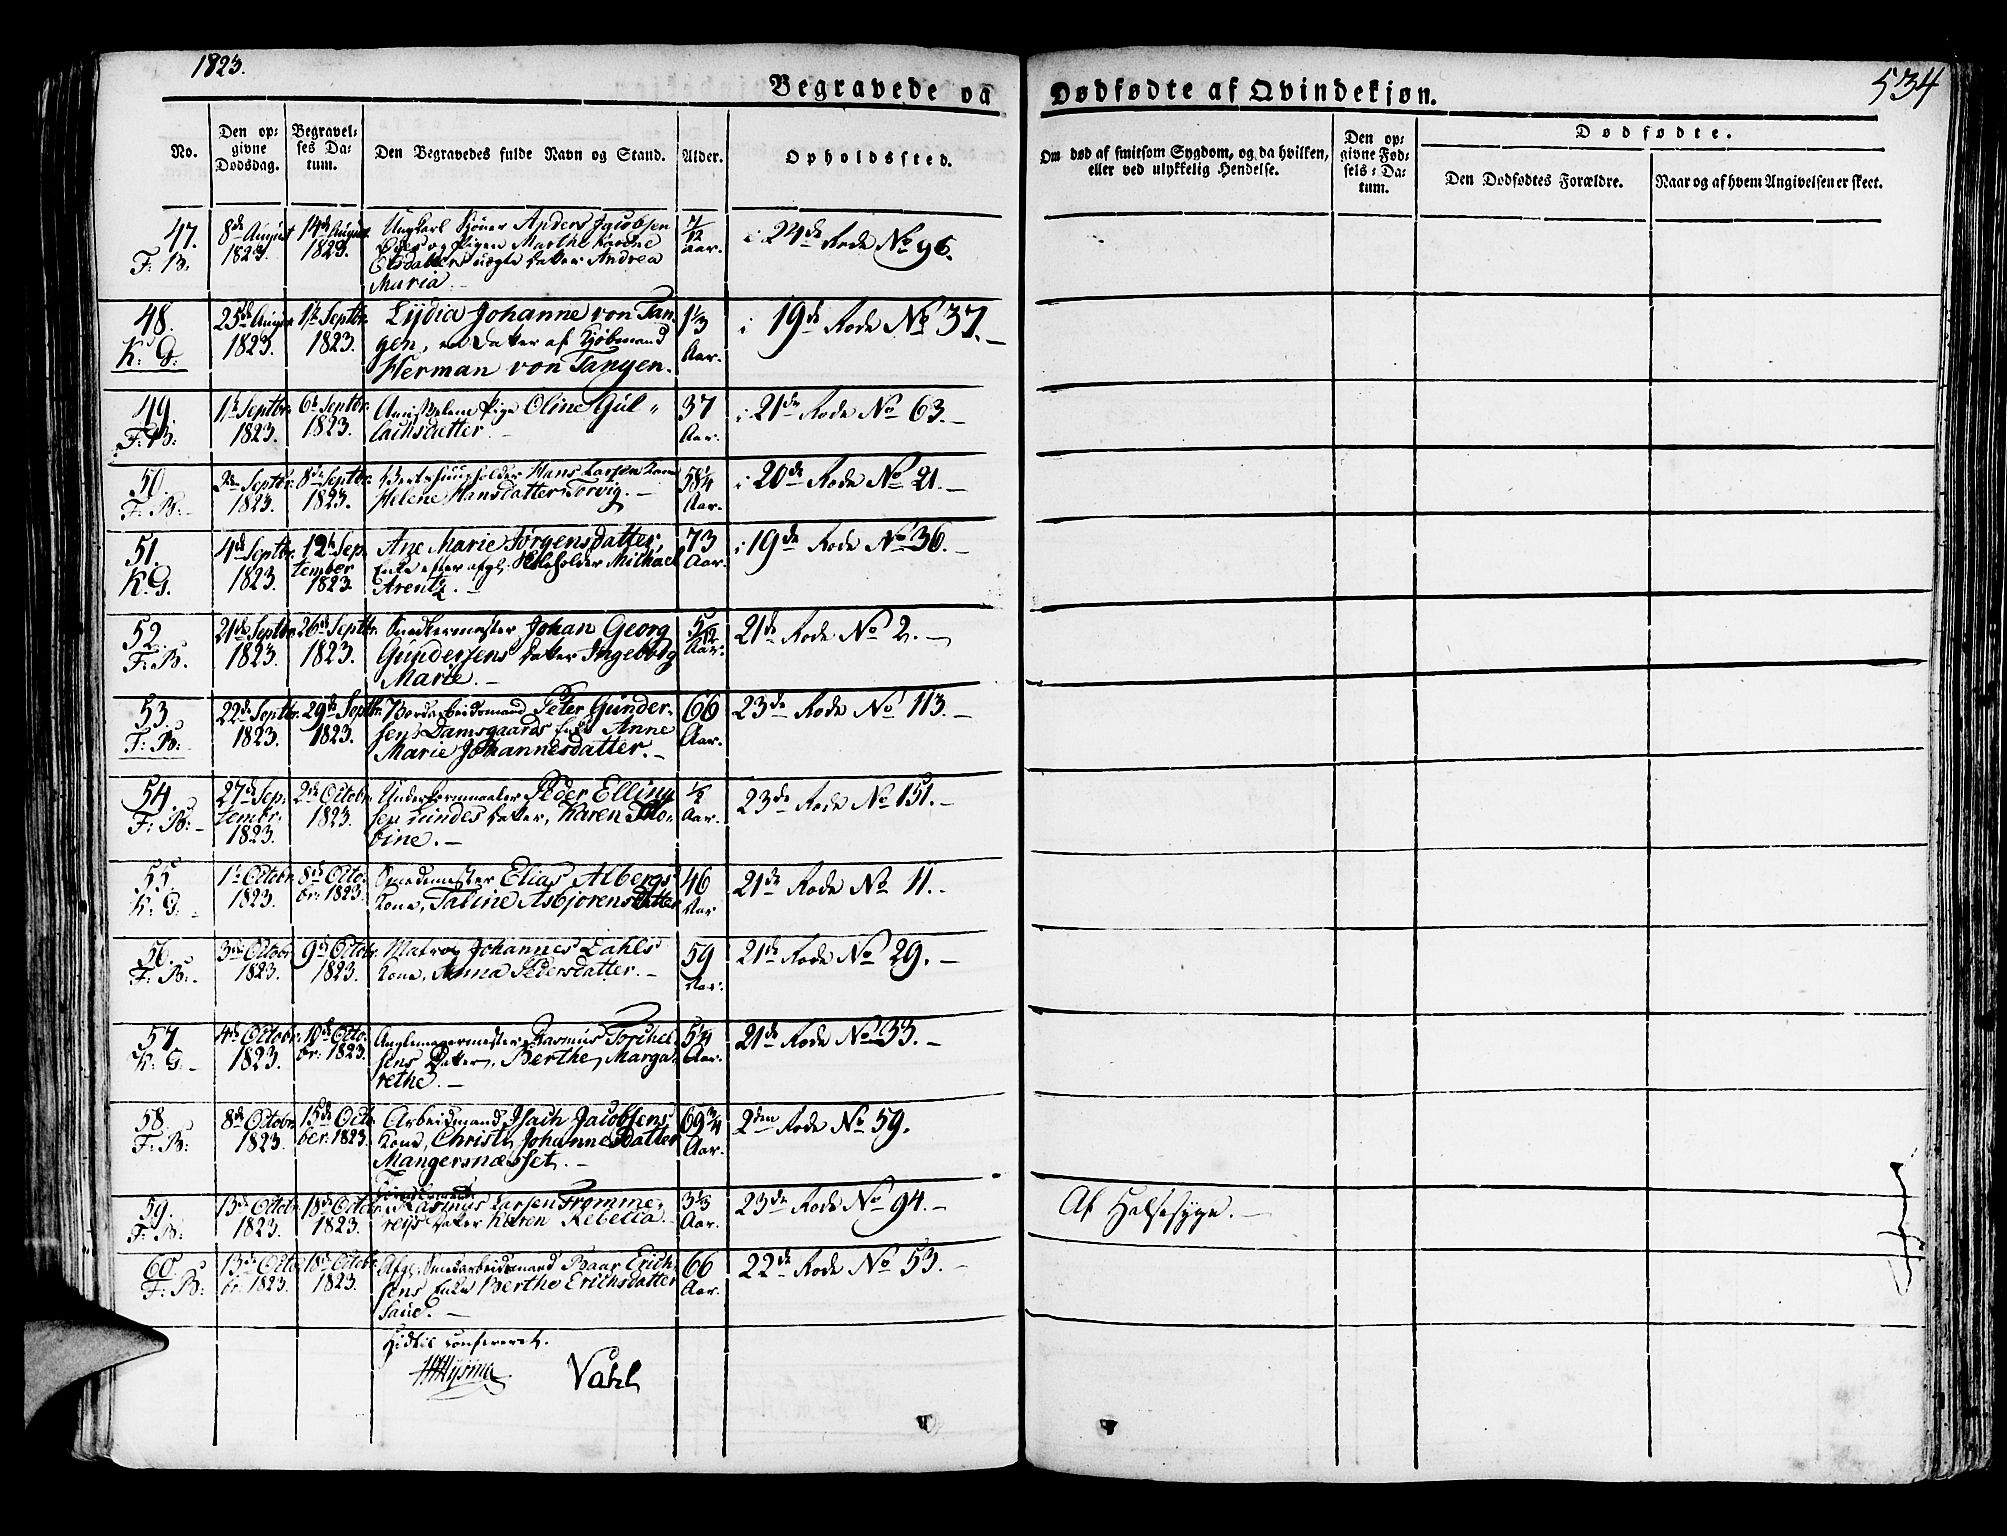 1823.
534
Begravede og Dødfødte af Qvindekjøn.
No.
Den op-
givne
Dødsdag.
Begravel-
ses Da-
tum.
Den Begravedes fulde Navn og Stand.
Alder.
Opholdssted.
Om død af smitsom Sygdom, og da hvilken,
eller ved ulykkelig Hendelse.
Den op-
givne Fød-
sels-Da-
tum.
Dødfødte.
Den Dødfødtes Forældre.
Naar og af hvem Angivelsen er skeet.
47.
F: B:
8de August
1823.
14de August
1823.
Ungkarl Anders Jacobsen
og Pigen Marthe Karine
Elsdatters uægte Datter Andrea
Maria.
7/12
Aar.
i 24de Rode No 96.
48.
K: D:
25de August
1823.
1te Septbr.
1823.
Lydia Johanne von Tan-
gen, en Datter af Kjøbmand
Herman von Tangen.
1 1/3
Aar.
i 19de Rode No 37.
49.
F: B:
1te Septbr.
1823.
6te Septbr.
1823.
Pige Oline Gul-
lachsdatter.
37
Aar.
i 21de Rode No 63.
50.
F: B:
Septbr.
1823.
8de Septbr.
1823.
Hans Larsen Kone
Helene Hansdatter Torvig.
58 1/4
Aar.
i 20de Rode No 21.
51.
K: D.
4de Septbr.
1823.
12te Sep-
tember
1823
Ane Marie Jørgensdatter,
Enke efter afgl. Michael
Arentz.
73
Aar.
i 19de Rode No 36.
52.
F: B.
21de Septbr.
1823.
26de Septbr.
1823.
Snedkermester Johan Georg
Gundersens Datter Ingeborg
Marie.
5/12
Aar.
21de Rode No 2.
53.
F: B:
22de Septbr.
1823.
29de Septbr.
1823.
Peter Gunder-
sens Damsgaards Enke Anne
Marie Johannesdatter.
66
Aar.
23de Rode No 113.
54.
F: B:
27de Sep-
tembr.
1823.
2de Octobr.
1823.
Underkornmaaler Peder Elling-
sen Lindes Datter, Karen Tho-
bine.
1/2
Aar.
23de Rode No 151.
55
K: D:
1te Octobr.
1823.
8de Octo-
br: 1823.
Smedemester Elias Albergs
Kone, Taline Asbjørensdatter
46
Aar
21de Rode No 11.
56.
F: B:
3de Octobr.
1823.
9de Octobr.
1823.
Matros Johannes Dahls
Kone, Anna Pedersdatter.
59
Aar.
21de Rode No 29.
57.
K: D:
4de Octobr.
1823.
10de Octo-
br: 1823.
Anglemagermester Rasmus Torchel-
sens Datter, Berthe Marga-
rethe.
5 1/4
Aar.
21de Rode No 33.
58.
F: B:
8de Octobr.
1823.
15de Octo-
ber. 1823.
Arbeidsmand Isach Jacobsens
Kone, Christi Johannesdatter
Mangersnæsset.
69 3/4
Aar.
2den Rode No 59.
59.
F: B:
13de Octobr.
1823.
18de Octobr.
1823.
Rasmus Larsen Fromme-
reys Datter Karen Rebecca.
3 1/3
Aar.
23de Rode No 94.
Af Halssyge.
60.
F: B:
13de Octo-
br. 1823.
18de Octobr.
1823.
Afgl. Baar Erich-
sens Enke Berthe Erichsdatter
Saue.
66
Aar.
22de Rode No 53.
Hidtil confereret.
Vahl